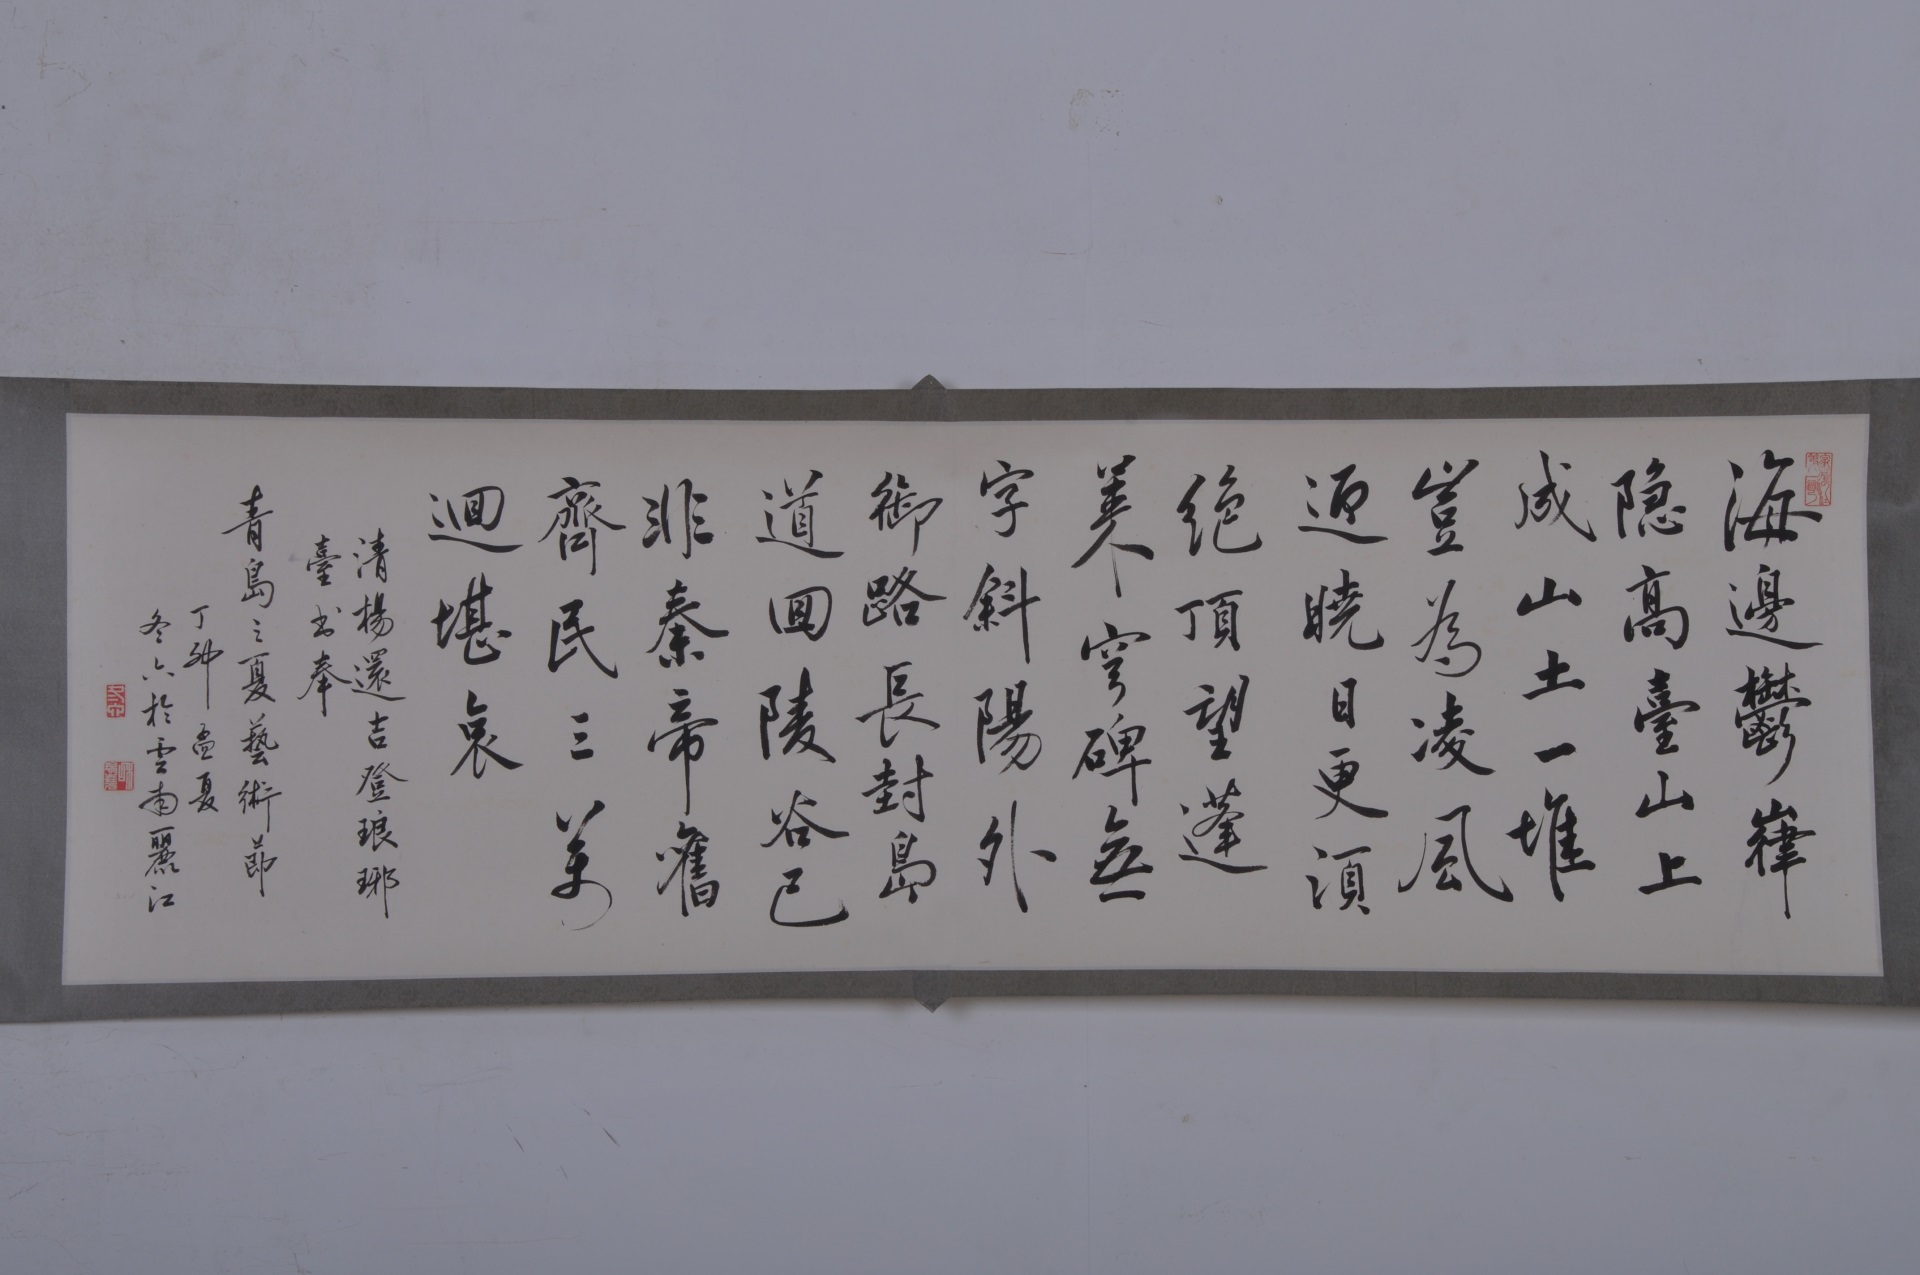 海邊鬱嵂
隐高臺山上
成山土一堆
豈為凌風
迎曉日更須
絶頂望蓬
萊穹碑無
字斜陽外
御路長封島
道回陵谷已
非秦帝舊
齊民三萬
迴堪哀
清楊還吉登琅琊
臺書奉
青島之夏藝術節
丁卯孟夏
於雲南麗江